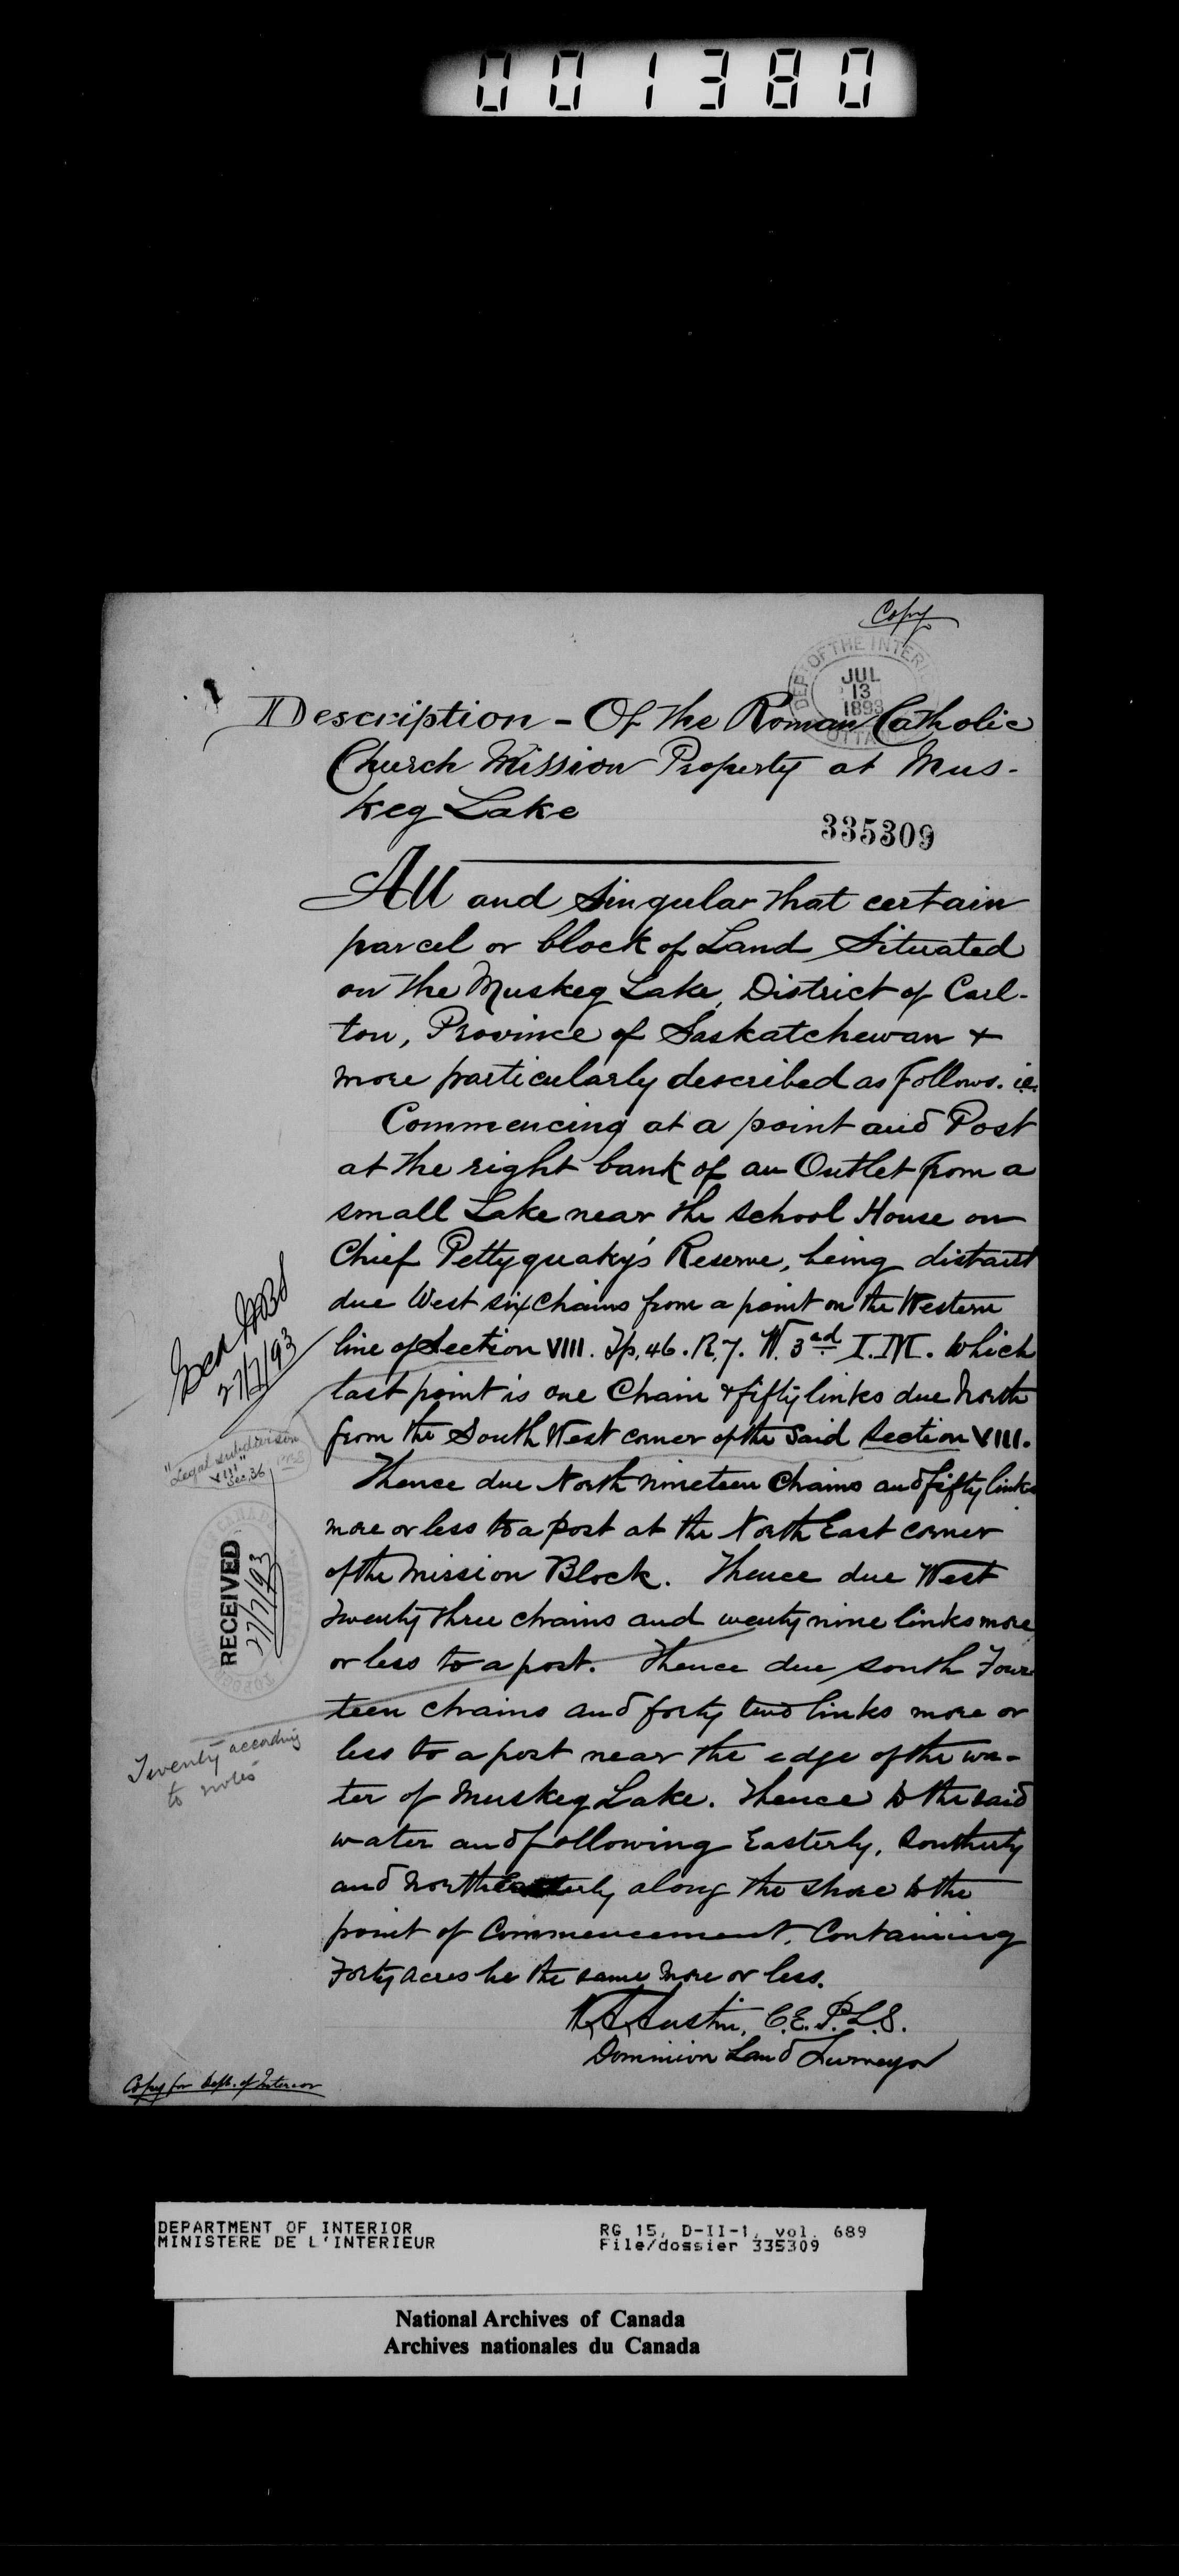 001380
Copy
DEPT OF THE INTERIOR
JUL
13
1893
OTTAWA
Description - Of the Roman Catholic
Church Mission Property at Mus-
keg Lake
335309
All and Singular that certain
parcel or block of Land Situated
on the Muskeg Lake, District of Carl-
ton, Province of Saskatchewan +
more particularly described as follows. i.e.
Commencing at a point and Post
at the right bank of an Outlet from a
small Lake near the School House on
Chief Pettyquaky's Reserve, being distant
due West six chains from a point on the Western
line of Section VIII. Tp. 46. R. 7. W. 3rd I.M. which
last point is one Chain & fifty links due North
from the South West corner of the Said Section VIII.
Thence due North nineteen Chains and fifty links
more or less to a post at the North East corner
of the Mission Block. Thence due West
twenty three chains and wenty nine links more
or less to a post. Thence due south Four
teen chains and forty two links more or
less to a post near the edge of the wa-
ter of Muskeg Lake. Thence to the said
water and following Easterly, Southerly
and Northeasterly along the shore to the
point of Commencement. Containing
Forty acres be the same more or less.
C.E. P.L.S.
Dominion Land Surveyor
27/7/93
"Legal subdivision
VIII"
Sec. 36
RECEIVED
27/7/93
Twenty according
to notes
Copy for Dept. of Interior
DEPARTMENT OF INTERIOR
MINISTERE DE L'INTERIEUR
RG 15, D-II-1, vol. 689
File/dossier 335309
National Archives of Canada
Archives nationales du Canada